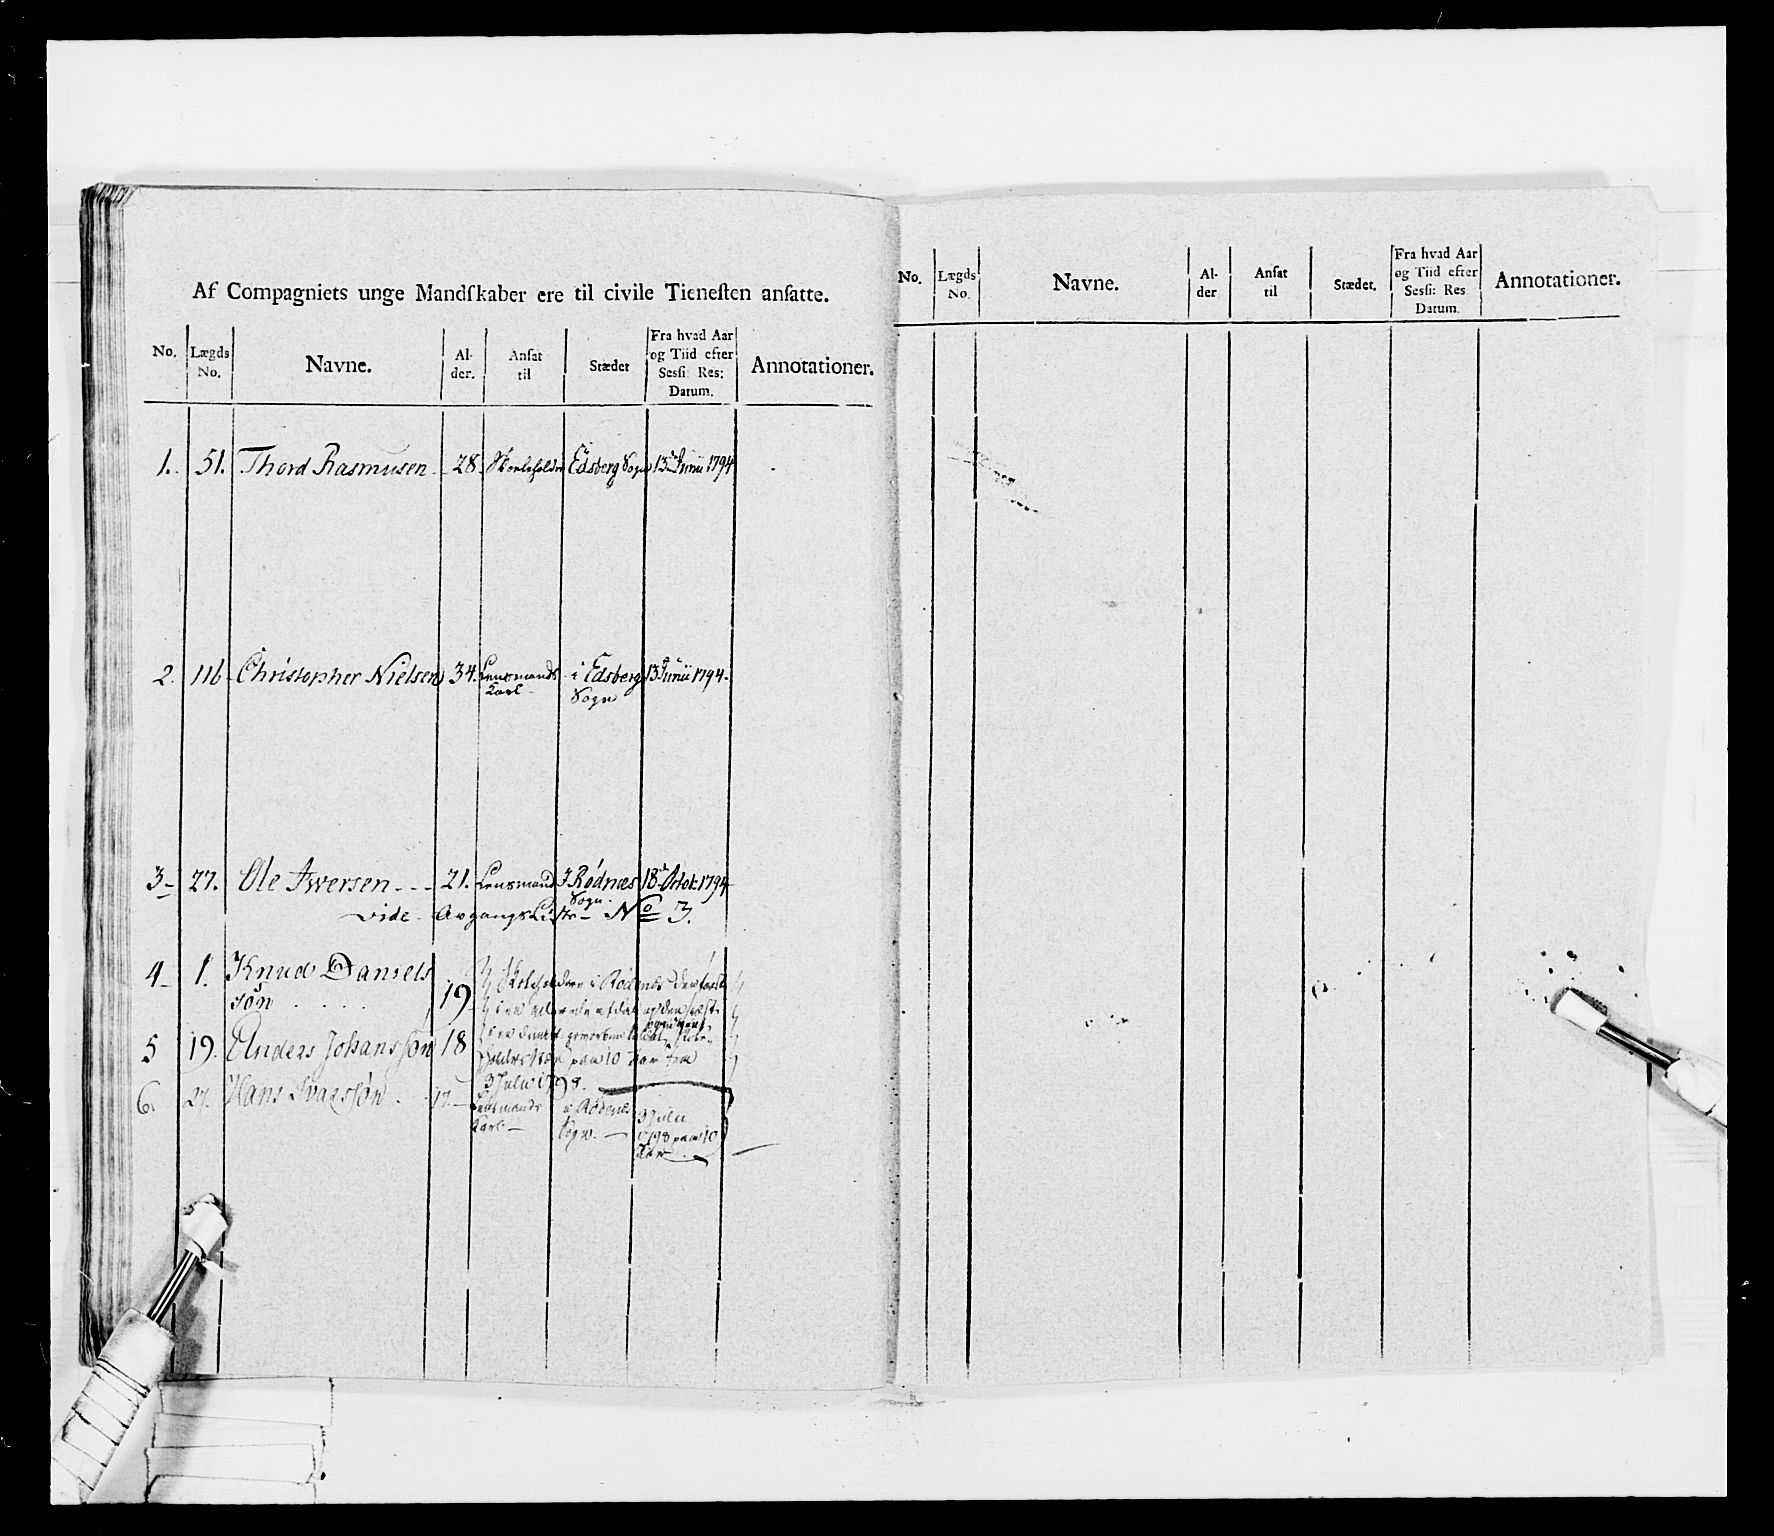 Af Compagniets unge Mandſkaber ere til civile Tieneſten anſatte.
No. Lægds No. Navne. Al-der. Anſat til Stædet Fra hvad Aar og Tiid efter Seſſi: Res: Datum. Annotationer.
1. 51. Thord Rasmusen 28. Skoleholder Edsberg Sogn 13de Junii 1794
2. 116 Christopher Nielsen 34. Lensmands i Edsberg 13 Junii 1794.
Karl Sogn
3 27. Ole Iwersen 21. Lensmand I Rødnæs 18de Octob: 1794
Sogn.
vide Avgangs Liste No 3.
4 1. Knud Daniels
søn 19 Skoleholdere i Rødenæs
5 19. Anders Johanssøn 18
paa 10 Aar fra
3 Julii 1798.
6. 27. Hans Svarssøn 17. Lensmands i Rødenæs 3 Julii
Karl Sogn. 1798 paa 10
Aar
No. Lægds No. Navne. Al-der Anſat til Stædet. Fra hvad Aar og Tiid efter Seſſi: Res Datum. Annotationer.